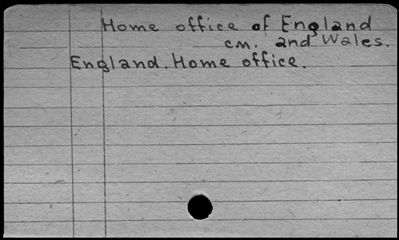 Home office of England
cm. and Wales.
England. Home office.